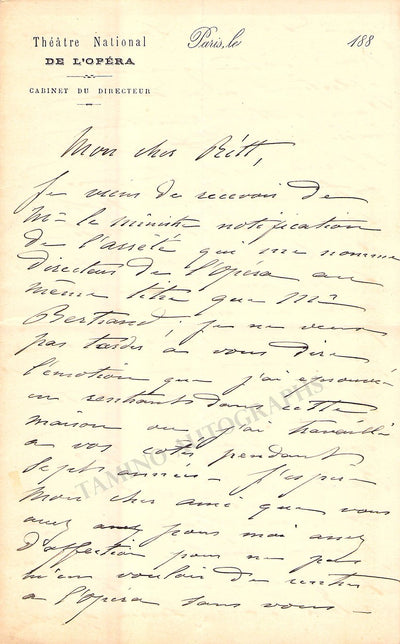 Théâtre National
DE L'OPÉRA
CABINET DU DIRECTEUR
Paris, le 188
Mon cher Ritt,
Je viens de recevoir de
Mr le ministre notification
de l'arrêté qui me nomme
Directeur de l'Opéra au
même titre que Mr
Bertrand, je ne veux
pas tarder à vous dire
l'émotion que j'ai
en rentrant dans cette
maison où j'ai travaillé
à vos cotés pendant
Sept années - J'espère
Mon cher ami que vous
avez pour moi assez
d'affection pour ne pas
m'en vouloir de rentrer
à l'Opéra sans vous -
TAMINO AUTOGRAPHS